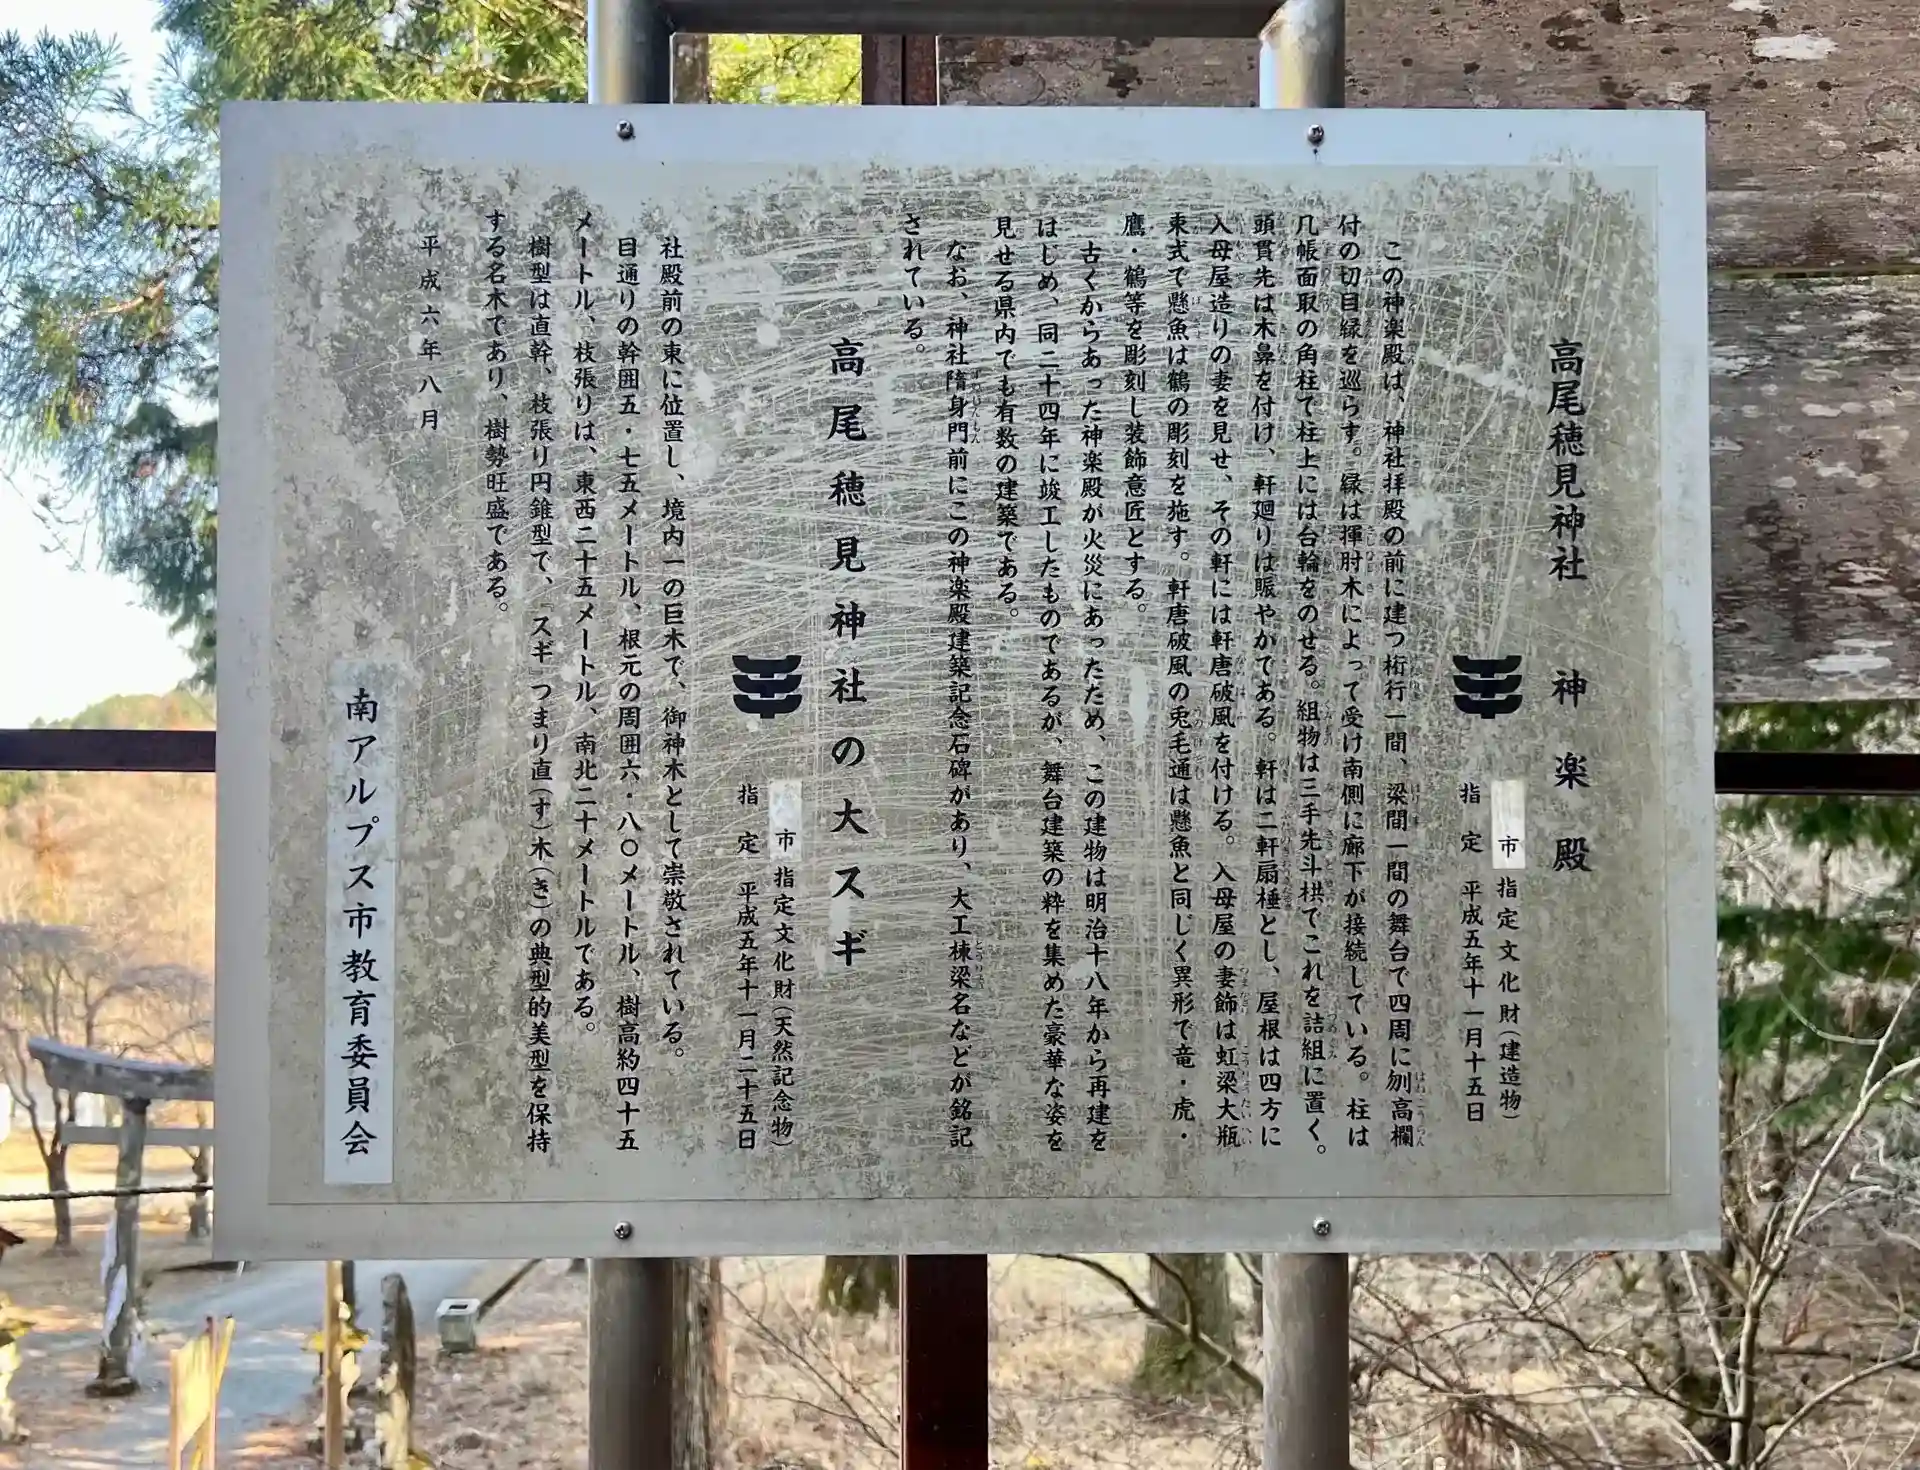 高尾穂見神社　神楽殿
市指定文化財(建造物)
指定　平成五年十一月十五日
この神楽殿は、神社拝殿の前に建つ桁行一間、梁間一間の舞台で四周に刎高欄
付の切目縁を巡らす。縁は挿肘木によって受け南側に廊下が接続している。柱は
几帳面取の角柱で柱上には台輪をのせる。組物は三手先斗栱でこれを詰組に置く。
頭貫先は木鼻を付け、軒廻りは賑やかである。軒は二軒扇棰とし、屋根は四方に
入母屋造りの妻を見せ、その軒には軒唐破風を付ける。入母屋の妻飾は虹梁大瓶
束式で懸魚は鶴の彫刻を施す。軒唐破風の兎毛通は懸魚と同じく異形で竜・虎・
鷹・鶴等を彫刻し装飾意匠とする。
古くからあった神楽殿が火災にあったため、この建物は明治十八年から再建を
はじめ、同二十四年に竣工したものであるが、舞台建築の粋を集めた豪華な姿を
見せる県内でも有数の建築である。
なお、神社隋身門前にこの神楽殿建築記念石碑があり、大工棟梁名などが銘記
されている。
高尾穂見神社の大スギ
市指定文化財(天然記念物)
指定　平成五年十一月二十五日
社殿前の東に位置し、境内一の巨木で、御神木として崇敬されている。
目通りの幹囲五・七五メートル、根元の周囲六・八〇メートル、樹高約四十五
メートル、枝張りは、東西二十五メートル、南北二十メートルである。
樹型は直幹、枝張り円錐型で、「スギ」つまり直(す)木(き)の典型的美型を保持
する名木であり、樹勢旺盛である。
平成六年八月
南アルプス市教育委員会